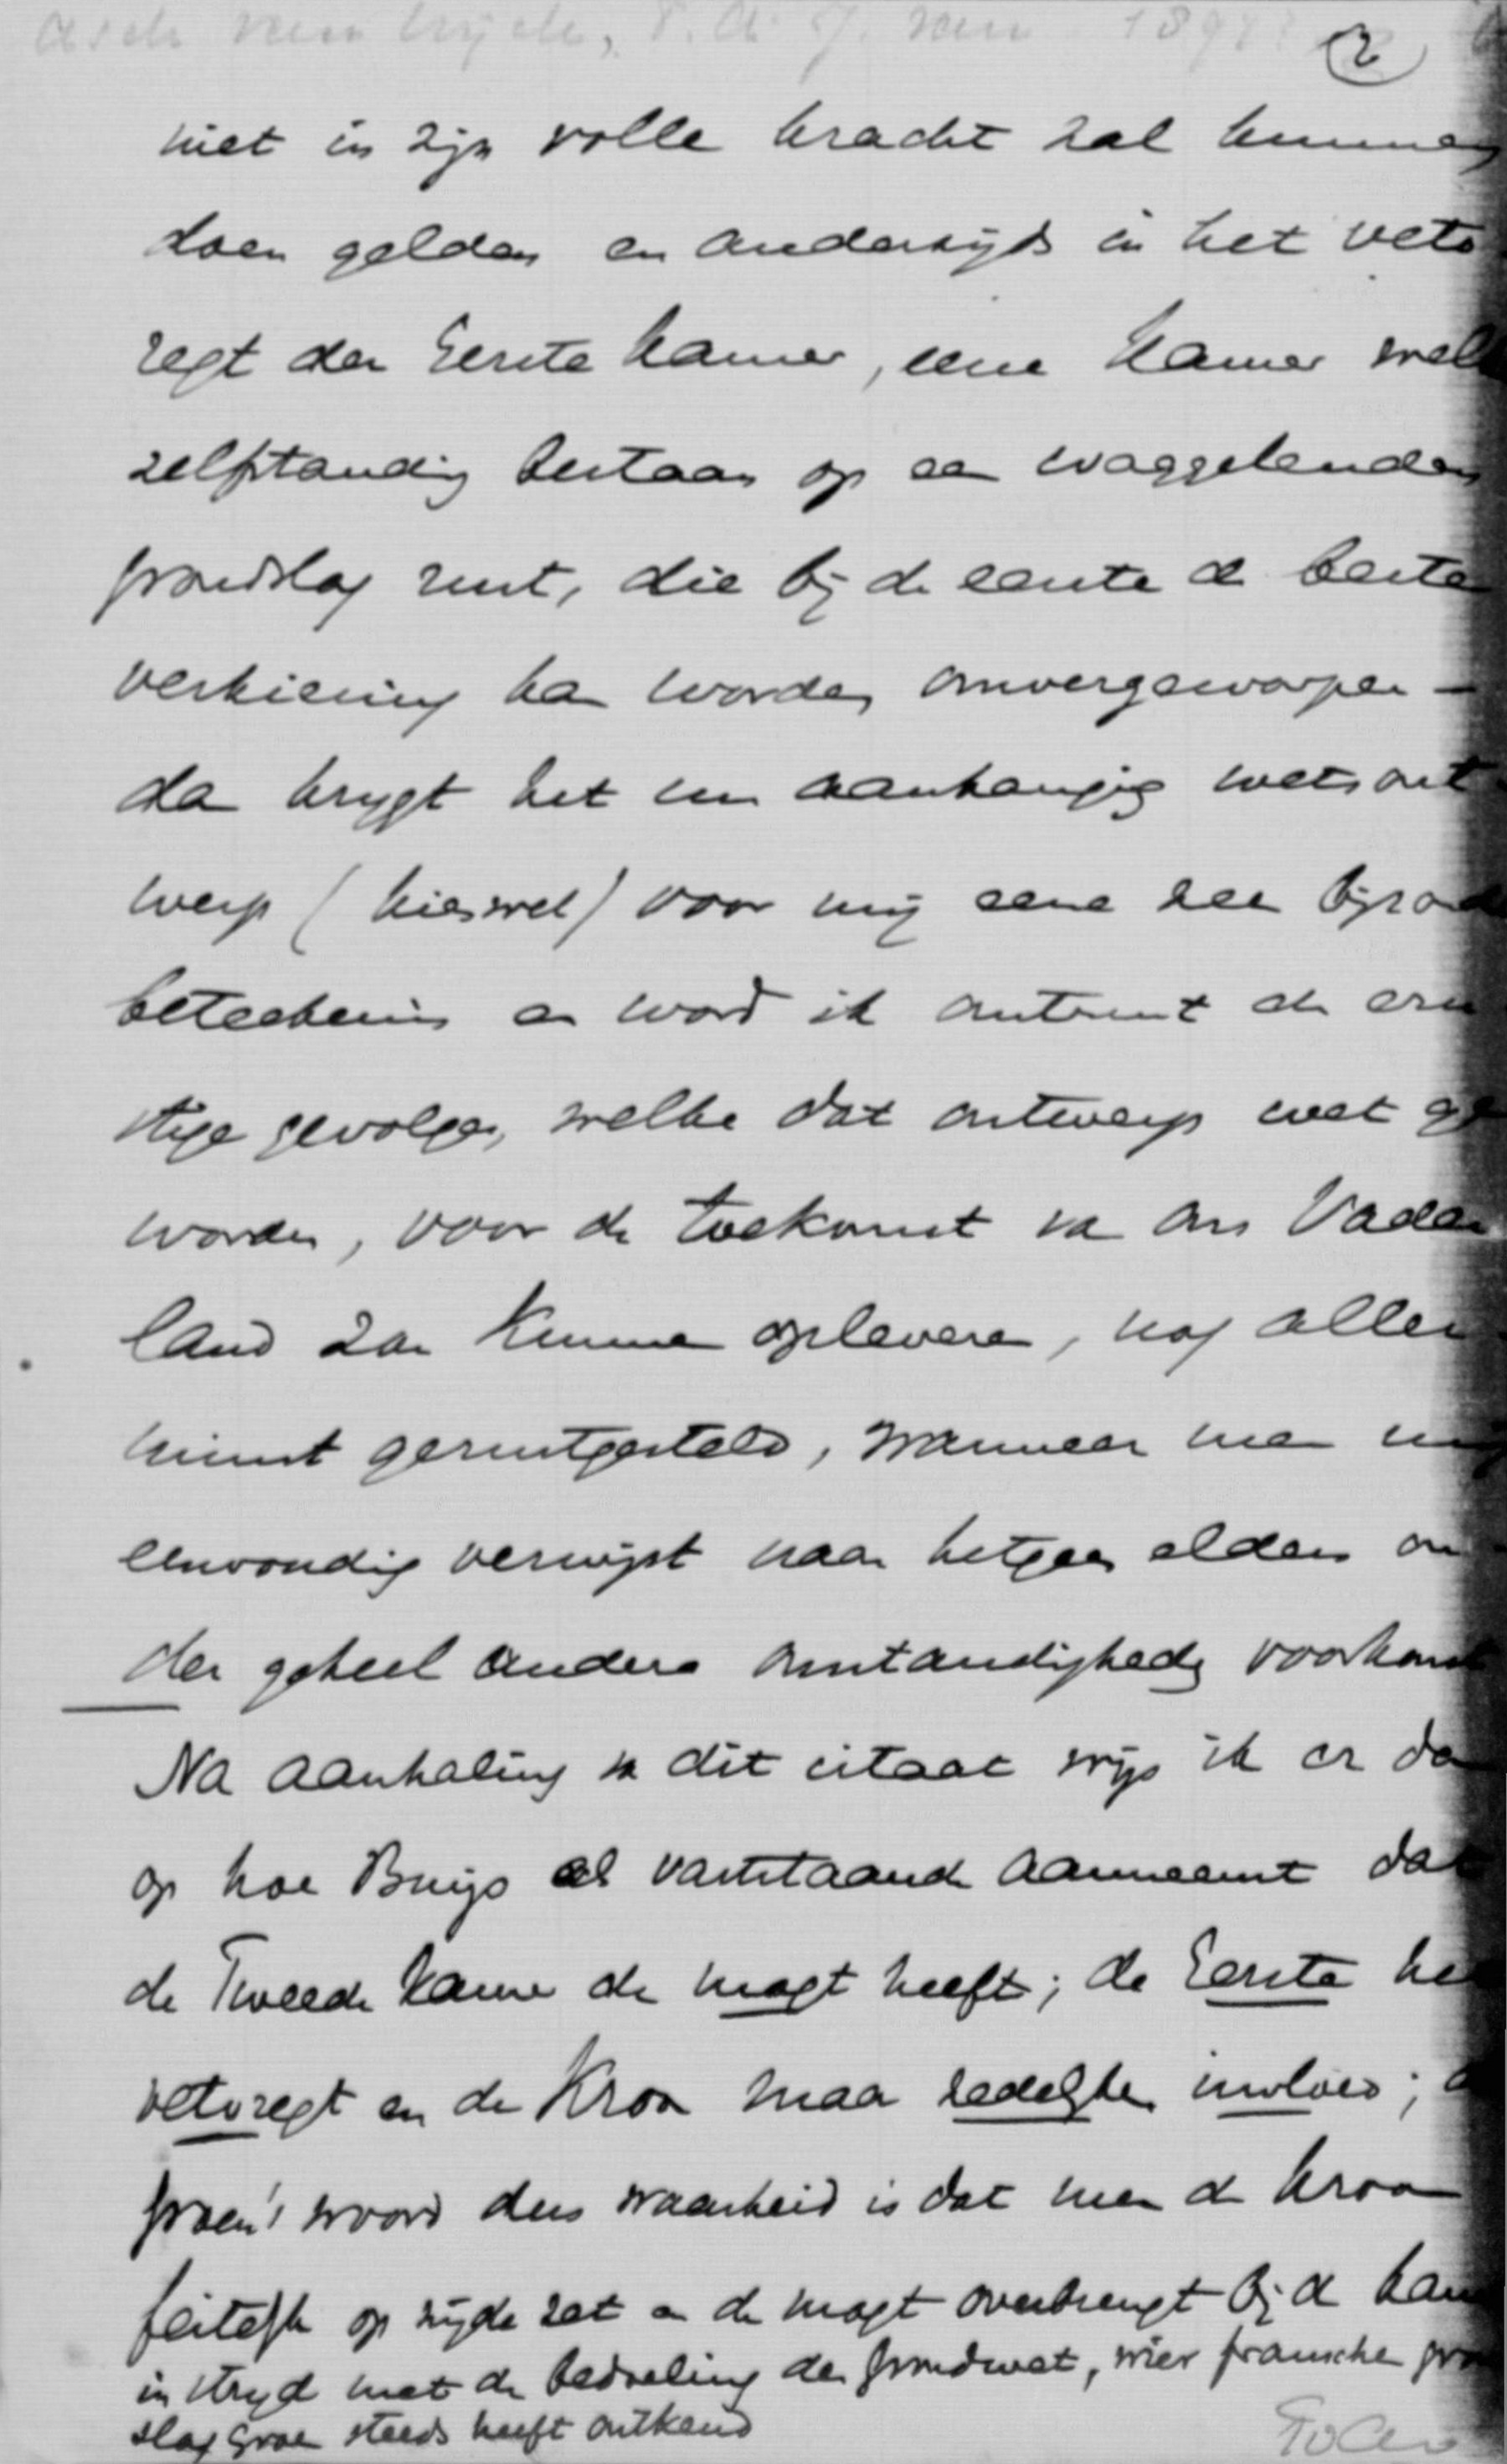 Asch van Wijck, 1894?
2
niet in zijn volle kracht zal kunnen
doen gelden en anderzijds in het veto
regt der Eerste Kamer, eene Kamer welk
zelfstandig bestaan op een waggelenden
grondslag rust, die bij de eerste de beste
verkiezing kan worden omvergeworpen –
dan krijgt het nu aanhangig wetsont
werp (kieswet) voor mij eene zeer bijzond
beteekenis en word ik omtrent de ern
stige gevolgen, welke dat ontwerp wet ge
worden, voor de toekomst van ons Vader
land zou kunnen opleveren, nog aller
minst gerustgesteld, wanneer men mij
eenvoudig verwijst naar hetgeen elders on
der geheel andere omstandigheden voorkomt
Na aanhaling v dit citaat wijs ik er dan
op hoe Buijs als vaststaande aanneemt dat
de Tweede Kamer de magt heeft; de Eerste het
vetoregt en de Kroon maar zedelijken invloed;
Groen's woord dus waarheid is dat men de kroon
feitelijk op zijde zet en de magt overbrengt bij de kam
in strijd met de bedoeling der grondwet, wier fransche gron
slag Groen steeds heeft ontkend